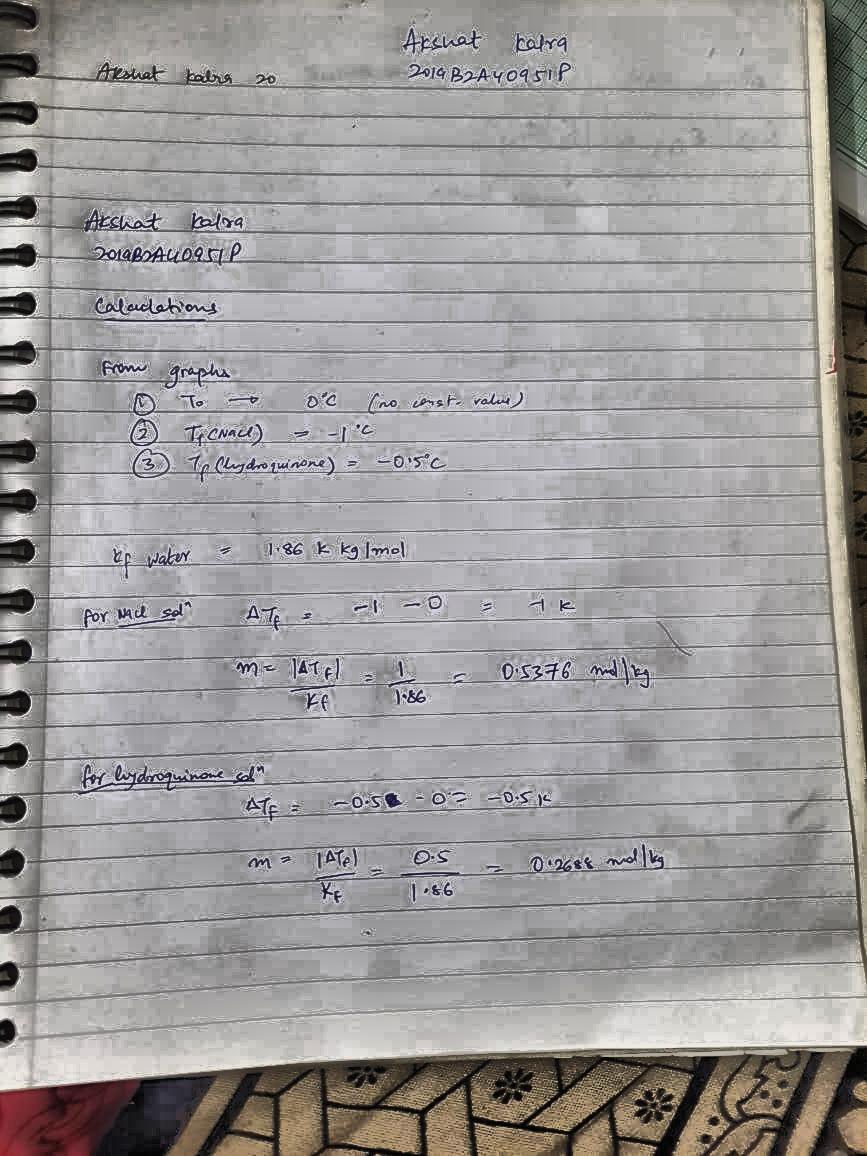 Akshat Kalra
Akshat Kalra 20
2019B2A40951P
Akshat Kalra
2019B2A40951P
Calculations
From graphs
① T₀ → 0°C (no const. value)
② Tf (NaCl) = -1°C
③ Tf (hydroquinone) = -0.5°C
Kf water = 1.86 K kg/mol
for NaCl solⁿ ΔTf = -1 - 0 = -1 K
m = |ΔTf| / Kf = 1 / 1.86 = 0.5376 mol/kg
for hydroquinone solⁿ
ΔTf = -0.5 - 0 = -0.5 K
m = |ΔTf| / Kf = 0.5 / 1.86 = 0.2688 mol/kg